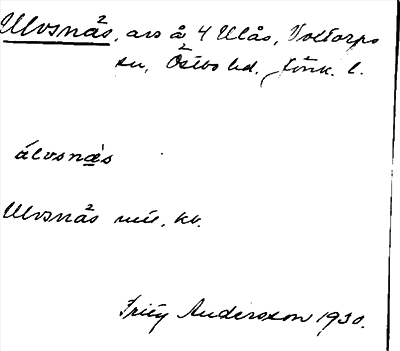 Ulvsnäs, avs å 4 Ulås, Voxtorps
sn, Östbo hd, Jönk. l.
álvsnä̀s
Ulvsnäs
Andersson 1930.